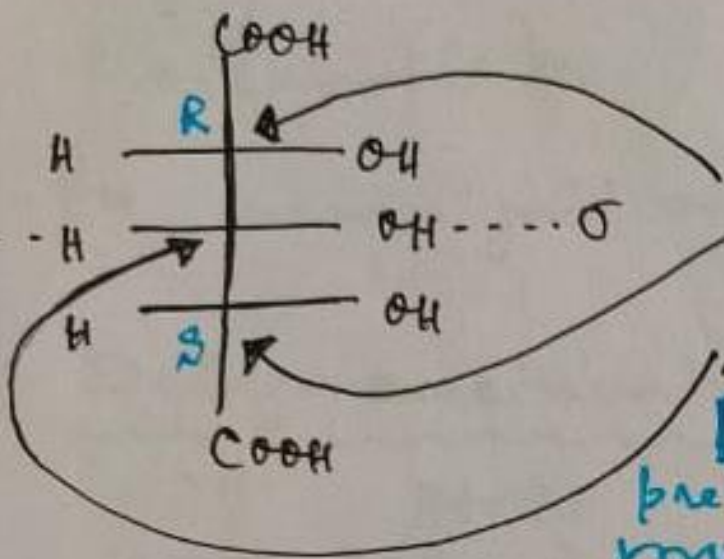 COOH
R
H OH
- H OH ----- σ
H OH
S
COOH
pre